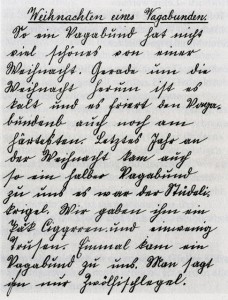 Weihnachten eines Vagabunden.
So ein Vagabund hat nicht
viel schönes von einer
Weihnacht. Gerade um die
Weihnacht herum ist es
kalt und es friert den Vaga-
bundenb auch noch am
härtesten. Letztes Jahr an
der Weihnacht kam auch
so ein halber Vagabund
zu uns es war der Stüdeli-
krigel. Wir gaben ihm ein
Päk Ciggaren und einwenig
Trusen. Einmal kam ein
Vagabund zu uns. Man sagt
ihm nur Zwölfischlegel.